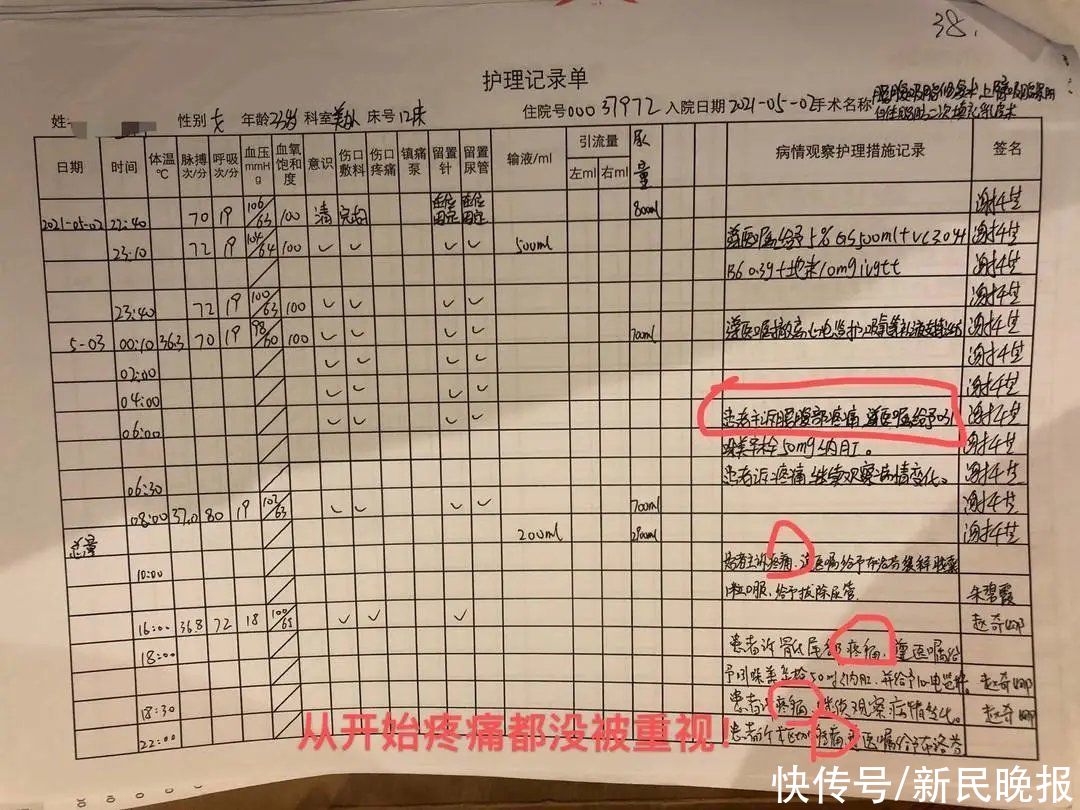 38.
护理记录单
姓 性别 女 年龄23岁 科室美外 床号12床 住院号00037972 入院日期2021-05-02手术名称
日期 时间 体温℃ 脉搏次/分 呼吸次/分 血压mmHg 血氧饱和度 意识 伤口敷料 伤口疼痛 镇痛泵 留置针 留置尿管 输液/ml 引流量 左ml 右ml 尿量 病情观察护理措施记录 签名
2021-05-02 22:40 70 19 106/63 100 清 在位固定 在位固定 800ml
23:10 72 19 104/64 100 ✓ ✓ ✓ ✓ 500ml 遵医嘱给予5%GS500ml+VC3.0+
B6 0.3g+地米10mg ivgtt
23:40 72 19 100/63 100 ✓ ✓ ✓ ✓
5-03 00:10 36.3 70 19 98/60 100 ✓ ✓ ✓ ✓ 700ml 遵医嘱
02:00 ✓ ✓ ✓ ✓
04:00 ✓ ✓ ✓ ✓
06:00 ✓ ✓ ✓ ✓ 患者主诉腰腹部疼痛,遵医嘱给予吲
哚美辛栓50mg纳肛。
06:30 患者诉疼痛,继续观察病情变化。
08:00 37.0 80 19 102/63 ✓ ✓ ✓ ✓ 700ml
总量 200ml 2900ml
10:00 患者主诉疼痛,遵医嘱给予布洛芬缓释胶囊
1粒口服,给予拔除尿管. 朱碧霞
16:00 36.8 72 18 100/65 ✓ ✓ ✓
18:00 患者诉骶尾部疼痛,遵医嘱给
予吲哚美辛栓50mg纳肛,
18:30 患者诉疼痛,继续观察病情变化。
22:00 患者诉 疼痛 遵医嘱给予布洛芬
从开始疼痛都没被重视!
快传号/新民晚报